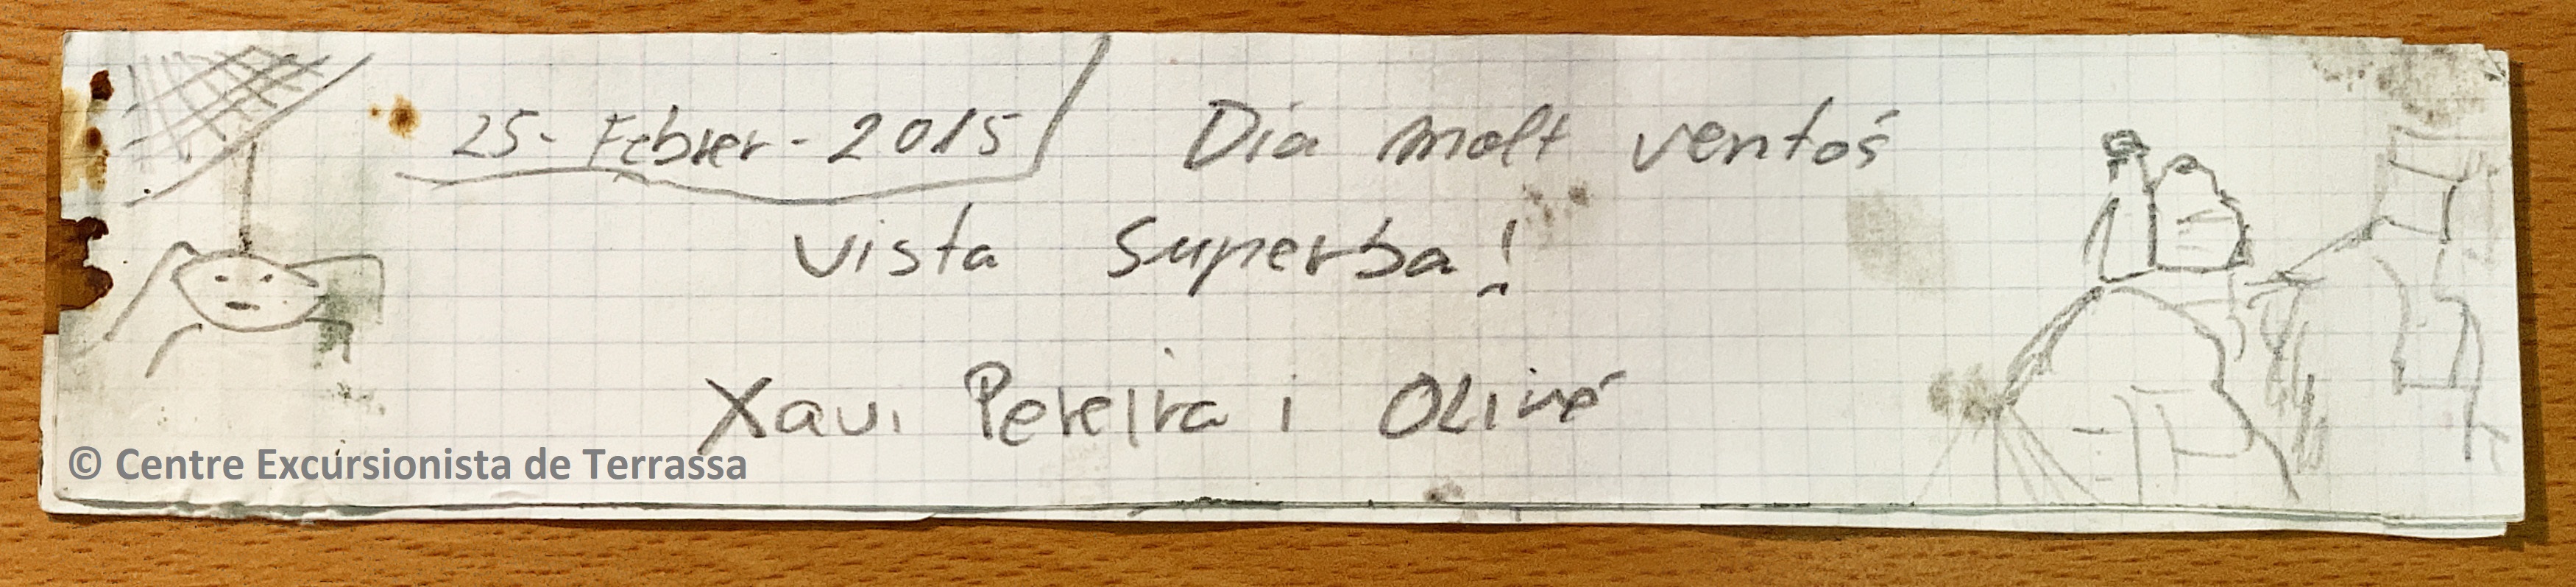 25-Febrer-2015/ Dia molt ventós
vista superba!
Xavi Pereira i Olivé
© Centre Excursionista de Terrassa